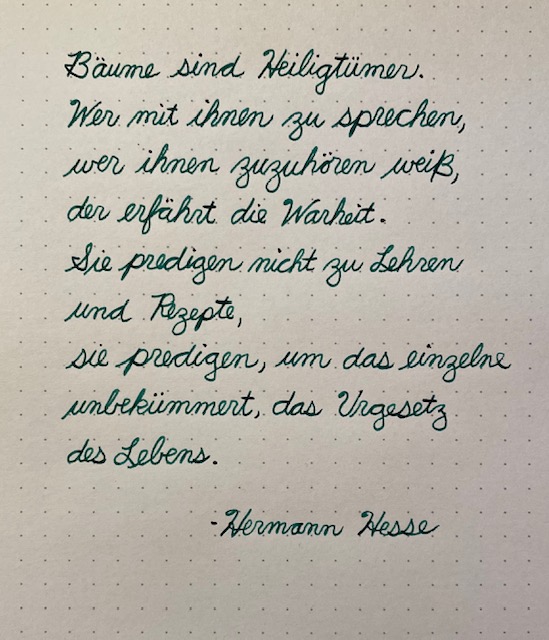 Bäume sind Heiligtümer.
Wer mit ihnen zu sprechen,
wer ihnen zuzuhören weiß,
der erfährt die Warheit.
Sie predigen nicht zu Lehren
und Rezepte,
sie predigen, um das einzelne
unbekümmert, das Urgesetz
des Lebens.
-Hermann Hesse